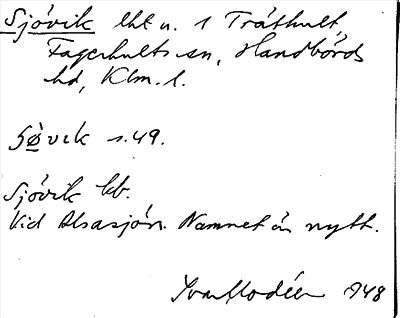 Sjövik lht u. 1 Tråthult,
Fagerhults sn, Handbörds
hd, Klm. l.
sø̄vik s. 49.
Sjövik kb.
Vid Alsasjön. Namnet är nytt.
Ivar Modéer 1948